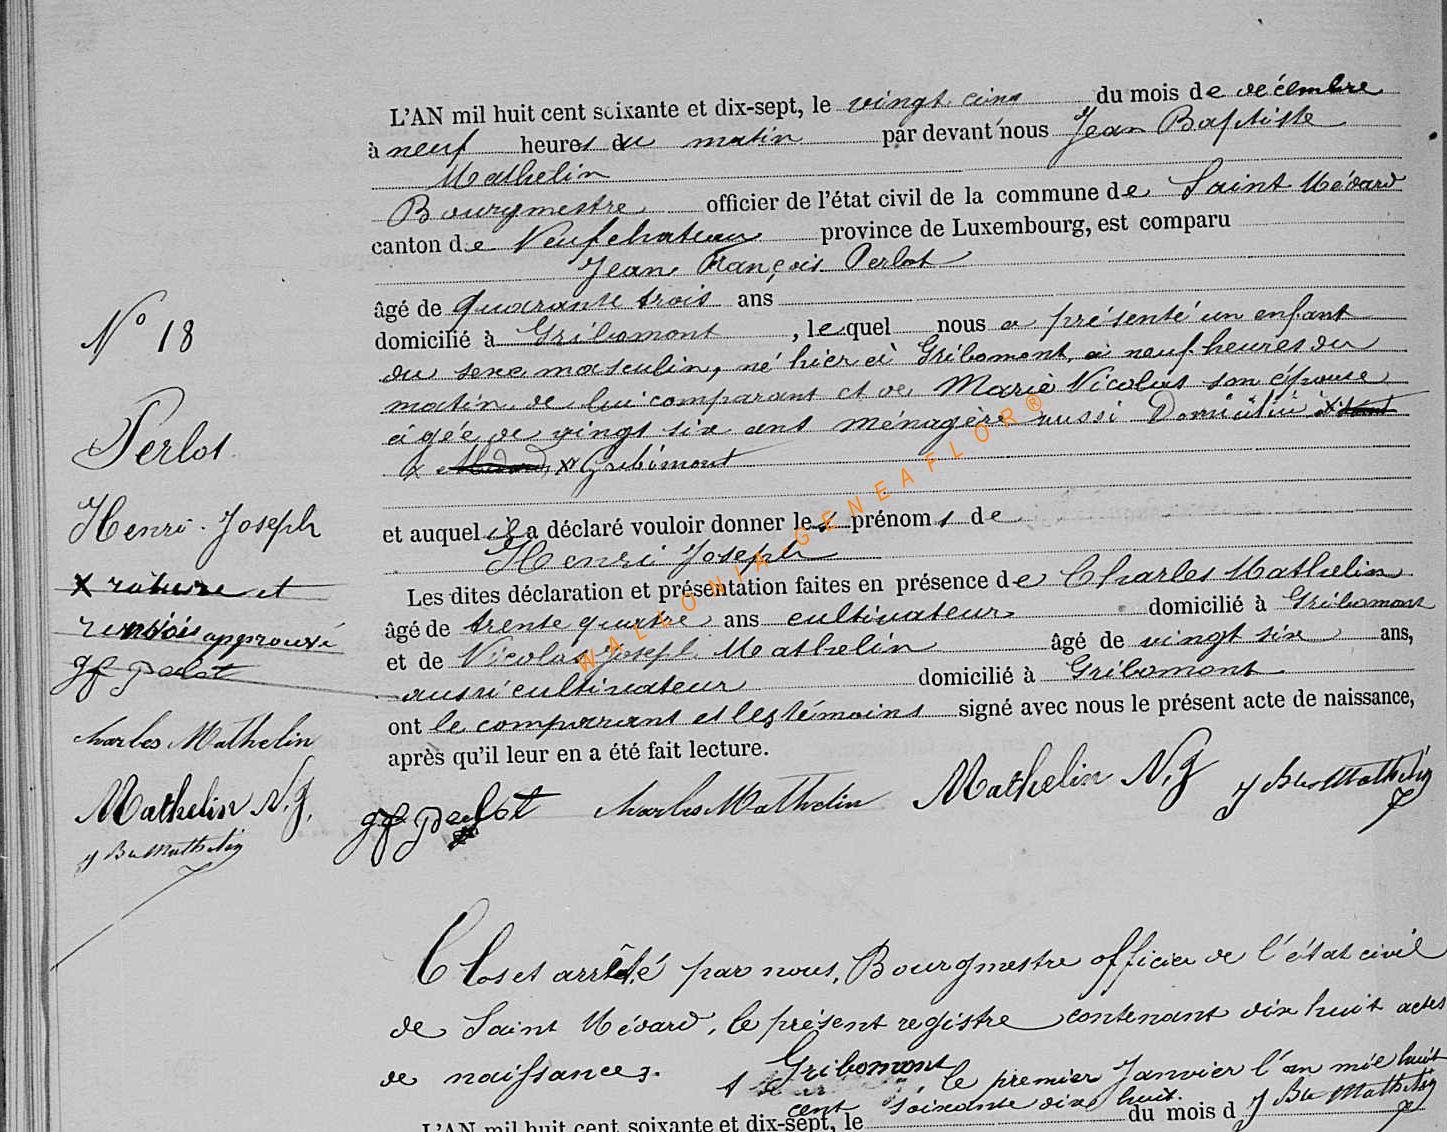 L'AN mil huit cent soixante et dix-sept, le vingt cinq du mois de décembre
à neuf heures du matin par devant nous Jean Baptiste
Mathelin
Bourgmestre officier de l'état civil de la commune de Saint Médard
canton de Neufchateau province de Luxembourg, est comparu
Jean François Perlot
âgé de quarante trois ans
domicilié à Gribomont, lequel nous a présenté un enfant
du sexe masculin, né hier à Gribomont, à neuf heures du
matin, de lui comparant et de Marie Nicolas son épouse
âgée de vingt six ans ménagère aussi Domicilié à
x Gribomont
et auquel il a déclaré vouloir donner les prénoms de
Henri Joseph
Les dites déclaration et présentation faites en présence de Charles Mathelin
âgé de trente quatre ans cultivateur domicilié à Gribomont
et de Nicolas Joseph Mathelin âgé de vingt six ans,
aussi cultivateur domicilié à Gribomont
ont le comparant et les témoins signé avec nous le présent acte de naissance,
après qu'il leur en a été fait lecture.
J F Perlot Charles Mathelin Mathelin N.J J Bte Mathelin
N° 18
Perlot
Henri-Joseph
x rature et
renvois approuvé
J F Perlot
Charles Mathelin
Mathelin N.J,
J Bte Mathelin
Clos et arrêté par nous, Bourgmestre officier de l'état civil
de Saint Médard, le présent registre contenant dix huit actes
de naissances.
A Gribomont, le premier Janvier l'an mil huit
cent soixante dix huit.
J Bte Mathelin
L'AN mil huit cent soixante et dix-sept, le du mois d
WALLONIA-GENEAFLOR®